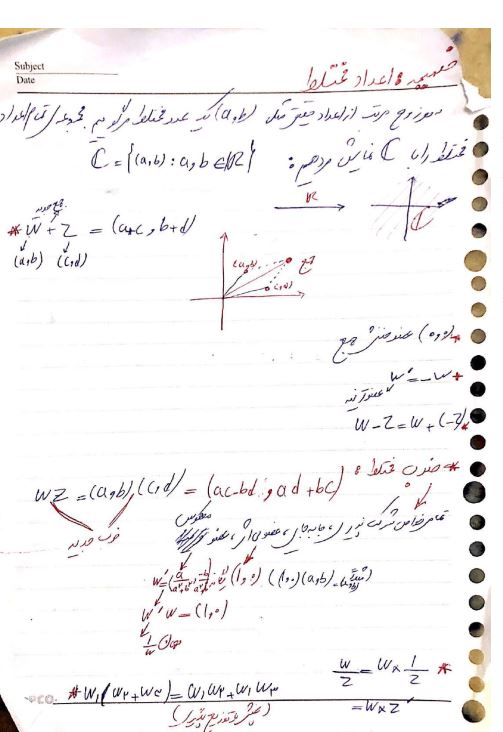 Subject
Date
ضمیمه: اعداد مختلط
به هر زوج مرتب از اعداد حقیقی مثل (a,b) یک عدد مختلط می‌گوییم مجموعه‌ی تمام اعداد
مختلط را با ℂ نمایش می‌دهیم:
ℂ = {(a,b) : a,b ∈ ℝ}
ℝ
ℂ
جمع جدید
* W + Z = (a+c, b+d)
(a,b) (c,d)
(a,b) جمع
(c,d)
* (0,0) عضو خنثی جمع
* w' = -w عضو قرینه
* W - Z = W + (-Z)
* ضرب مختلط:
WZ = (a,b)(c,d) = (ac-bd, ad+bc)
ضرب جدید
تمام خواص شرکت پذیری، جابه‌جایی، عضو اثر، عضو معکوس
(1,0) (1,0)(a,b) = (a,b)
w'w = (1,0)
1/w
* W/Z = W × 1/Z
= W × Z'
* W₁(W₂+W₃) = W₁W₂ + W₁W₃
(پخش یا توزیع پذیری)
PCO.